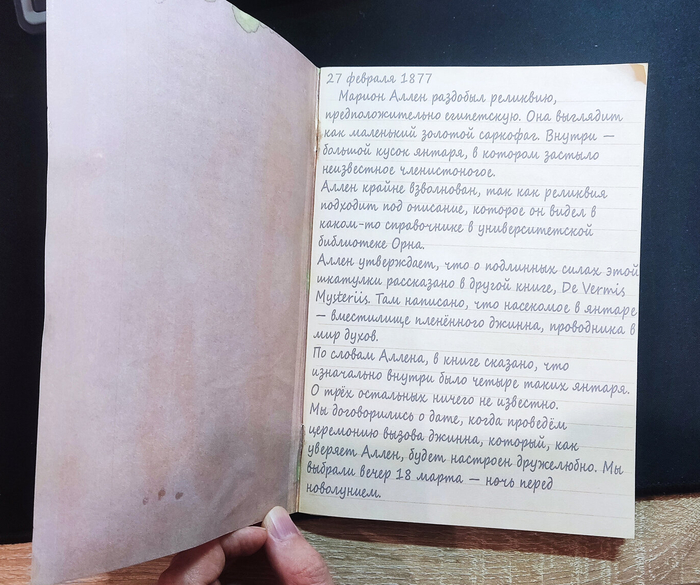 27 февраля 1877
Марион Аллен раздобыл реликвию,
предположительно египетскую. Она выглядит
как маленький золотой саркофаг. Внутри —
большой кусок янтаря, в котором застыло
неизвестное членистоногое.
Аллен крайне взволнован, так как реликвия
подходит под описание, которое он видел в
каком-то справочнике в университетской
библиотеке Орна.
Аллен утверждает, что о подлинных силах этой
шкатулки рассказано в другой книге, De Vermis
Mysteriis. Там написано, что насекомое в янтаре
— вместилище пленённого джинна, проводника в
мир духов.
По словам Аллена, в книге сказано, что
изначально внутри было четыре таких янтаря.
О трёх остальных ничего не известно.
Мы договорились о дате, когда проведём
церемонию вызова джинна, который, как
уверяет Аллен, будет настроен дружелюбно. Мы
выбрали вечер 18 марта — ночь перед
новолунием.